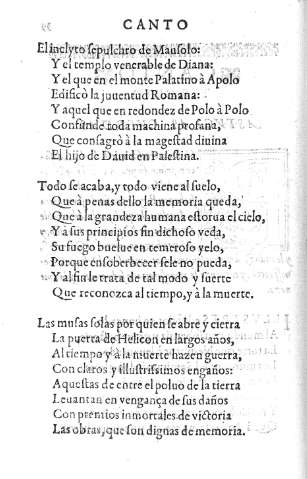 CANTO
El inclyto sepulchro de Mausolo:
Y el templo venerable de Diana:
Y el que en el monte Palatino à Apolo
Edificò la juuentud Romana:
Y aquel que en redondez de Polo à Polo
Confunde toda machina profana,
Que consagrò à la magestad diuina
El hijo de Dauid en Palestina.
Todo se acaba, y todo viene al suelo,
Que à penas dello la memoria queda,
Que à la grandeza humana estorua el cielo,
Y à sus principios fin dichoso veda,
Su fuego buelue en temeroso yelo,
Porque ensoberbecer sele no pueda,
Y al fin le trata de tal modo y suerte
Que reconozca al tiempo, y à la muerte.
Las musas solas por quien se abre y cierra
La puerta de Helicon en largos años,
Al tiempo y à la muerte hazen guerra,
Con claros y illustrissimos engaños:
Aquestas de entre el poluo de la tierra
Leuantan en vengança de sus daños
Con premios inmortales de victoria
Las obras, que son dignas de memoria.